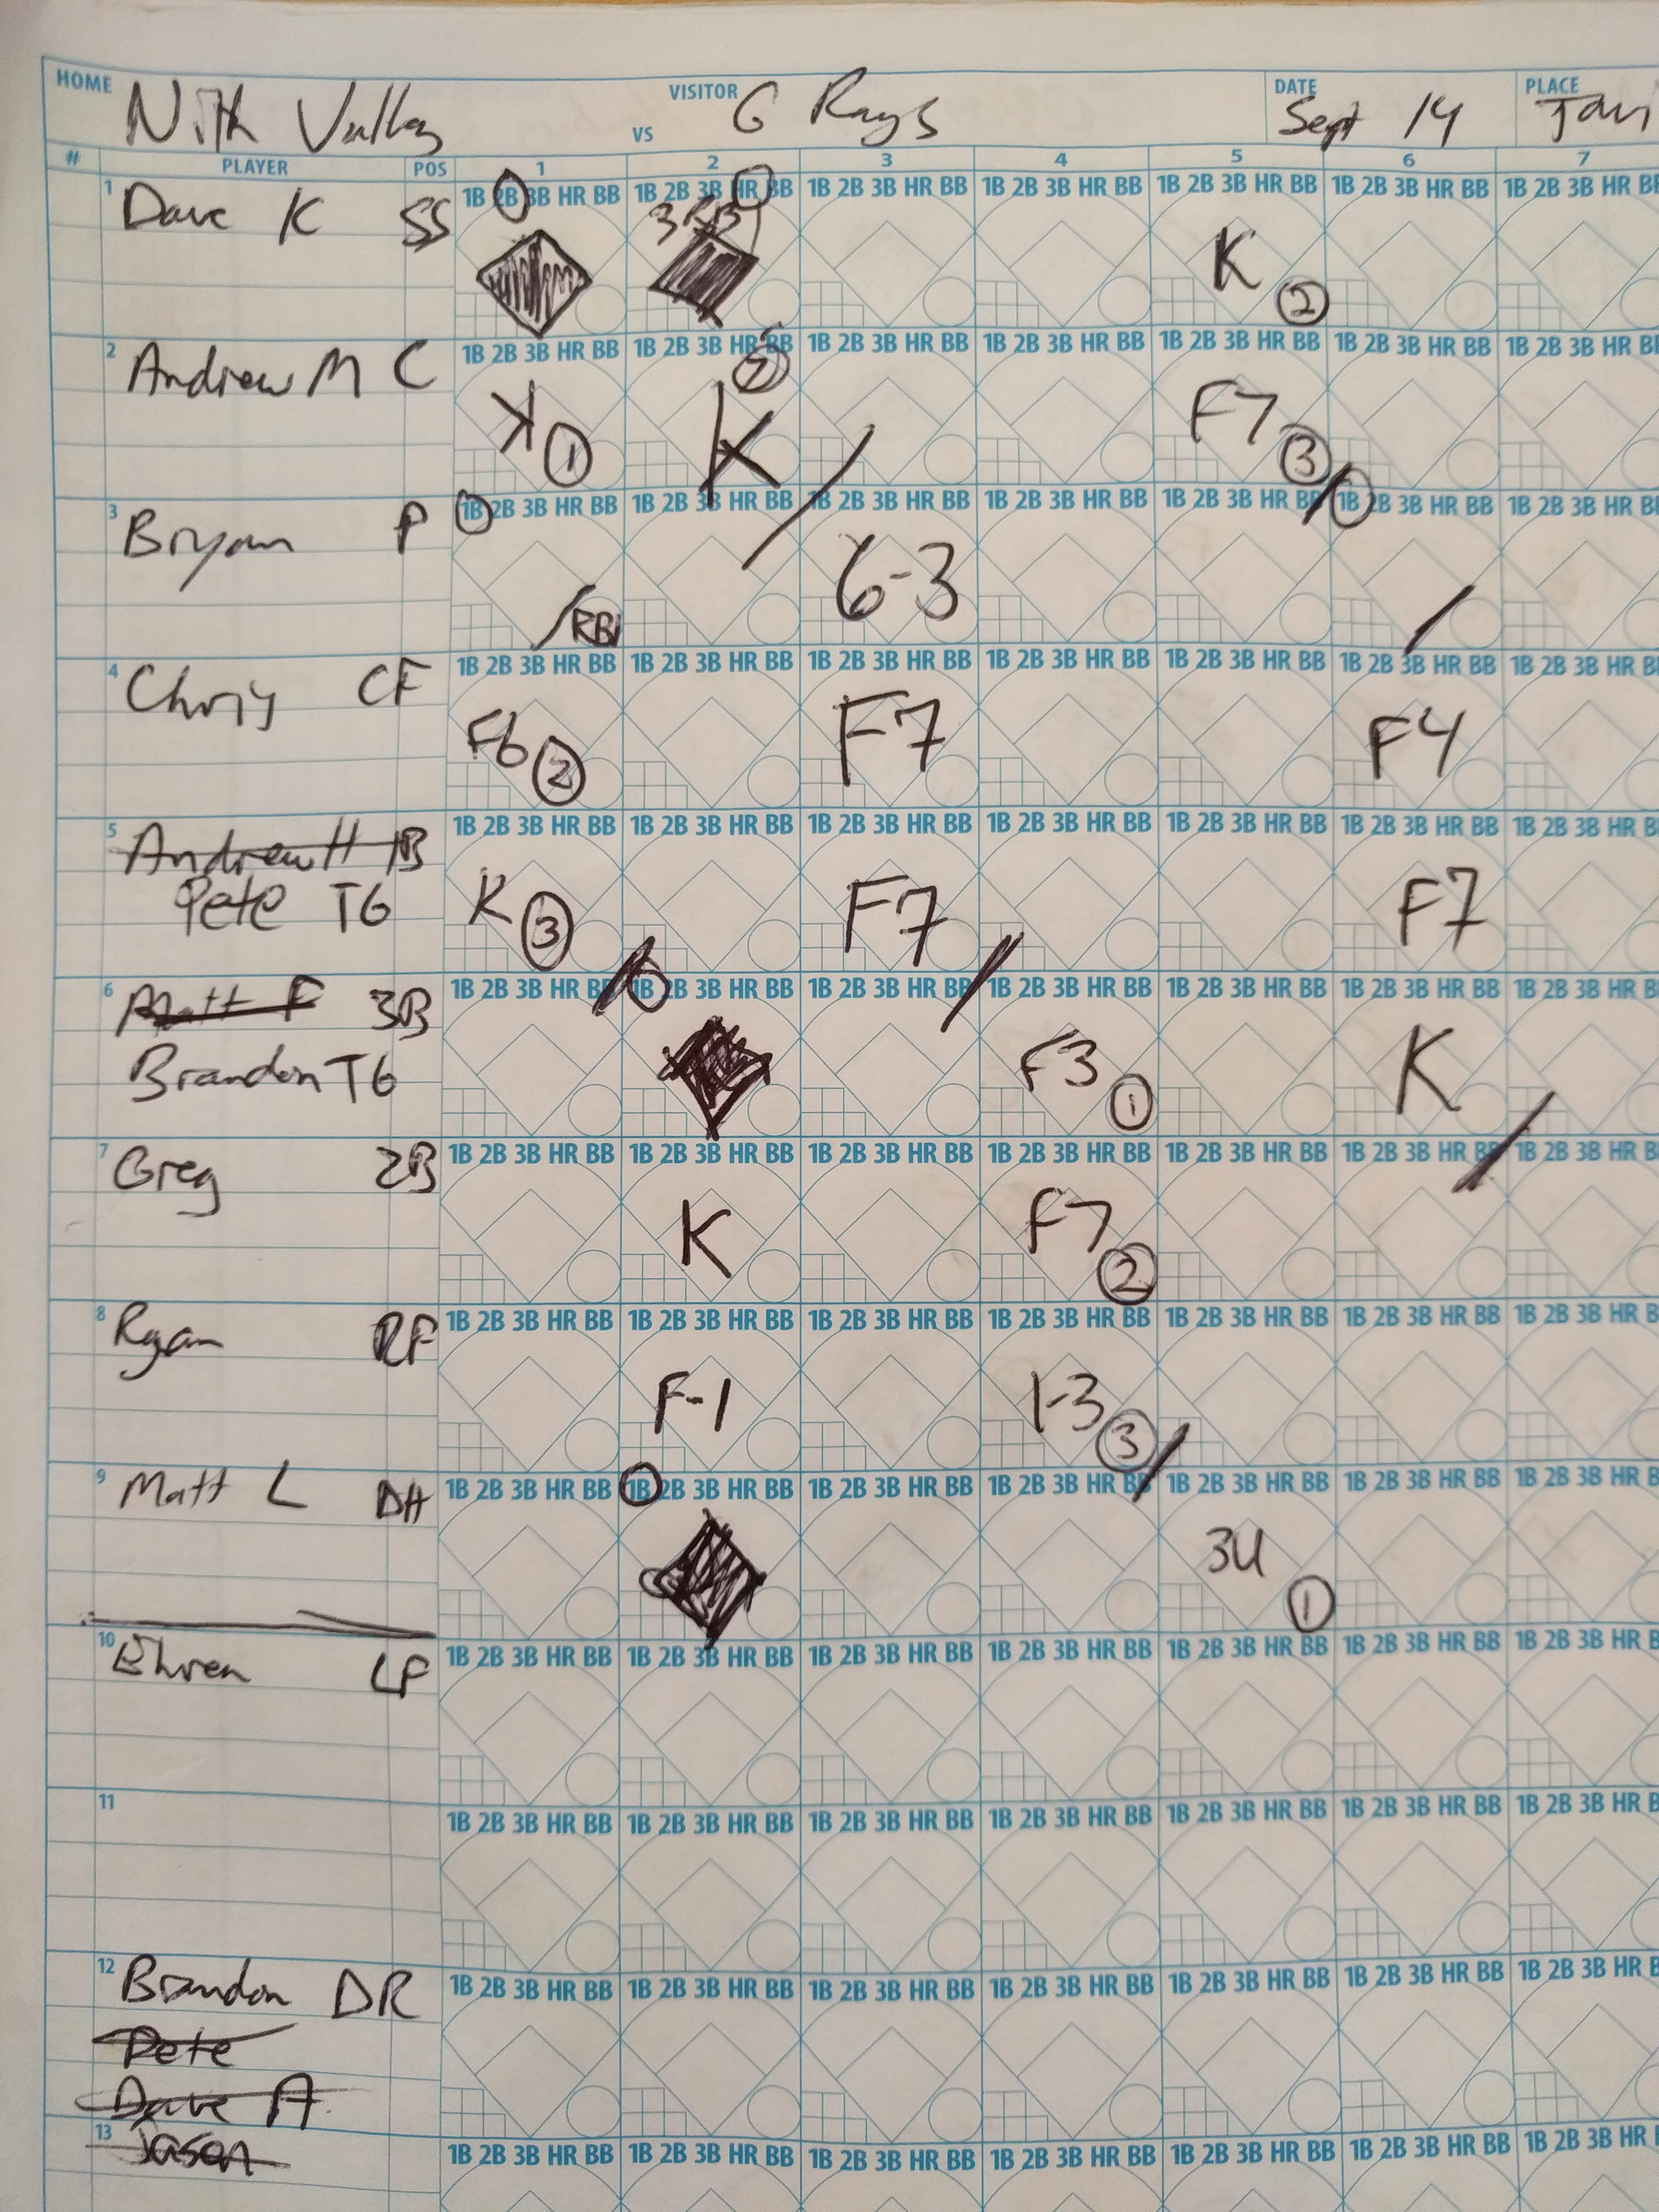 HOME Nith Valley VS VISITOR G Rays DATE Sept 14 PLACE
# PLAYER POS 1 2 3 4 5 6 7
1 Dave K SS 1B 2B 3B HR BB 1B 2B 3B HR BB 1B 2B 3B HR BB 1B 2B 3B HR BB 1B 2B 3B HR BB 1B 2B 3B HR BB 1B 2B 3B HR
3RBI K 2
2 Andrew M C 1B 2B 3B HR BB 1B 2B 3B HR BB 1B 2B 3B HR BB 1B 2B 3B HR BB 1B 2B 3B HR BB 1B 2B 3B HR BB 1B 2B 3B HR
K 1 K F7 3
3 Bryan P 1B 2B 3B HR BB 1B 2B 3B HR BB 1B 2B 3B HR BB 1B 2B 3B HR BB 1B 2B 3B HR BB 1B 2B 3B HR BB 1B 2B 3B HR
RBI 6-3
4 Chris CF 1B 2B 3B HR BB 1B 2B 3B HR BB 1B 2B 3B HR BB 1B 2B 3B HR BB 1B 2B 3B HR BB 1B 2B 3B HR BB 1B 2B 3B HR
F6 2 F7 F4
5 Andrew H 1B 1B 2B 3B HR BB 1B 2B 3B HR BB 1B 2B 3B HR BB 1B 2B 3B HR BB 1B 2B 3B HR BB 1B 2B 3B HR BB 1B 2B 3B HR
Pete T6 K 3 F7 F7
6 Matt F 3B 1B 2B 3B HR BB 1B 2B 3B HR BB 1B 2B 3B HR BB 1B 2B 3B HR BB 1B 2B 3B HR BB 1B 2B 3B HR BB 1B 2B 3B HR
Brandon T6 F3 1 K
7 Greg 2B 1B 2B 3B HR BB 1B 2B 3B HR BB 1B 2B 3B HR BB 1B 2B 3B HR BB 1B 2B 3B HR BB 1B 2B 3B HR BB 1B 2B 3B HR
K F7 2
8 Ryan RF 1B 2B 3B HR BB 1B 2B 3B HR BB 1B 2B 3B HR BB 1B 2B 3B HR BB 1B 2B 3B HR BB 1B 2B 3B HR BB 1B 2B 3B HR
F-1 1-3 3
9 Matt L DH 1B 2B 3B HR BB 1B 2B 3B HR BB 1B 2B 3B HR BB 1B 2B 3B HR BB 1B 2B 3B HR BB 1B 2B 3B HR BB 1B 2B 3B HR
3U 1
10 Ehren LF 1B 2B 3B HR BB 1B 2B 3B HR BB 1B 2B 3B HR BB 1B 2B 3B HR BB 1B 2B 3B HR BB 1B 2B 3B HR BB 1B 2B 3B HR
11 1B 2B 3B HR BB 1B 2B 3B HR BB 1B 2B 3B HR BB 1B 2B 3B HR BB 1B 2B 3B HR BB 1B 2B 3B HR BB 1B 2B 3B HR
12 Brandon DR 1B 2B 3B HR BB 1B 2B 3B HR BB 1B 2B 3B HR BB 1B 2B 3B HR BB 1B 2B 3B HR BB 1B 2B 3B HR BB 1B 2B 3B HR
Pete
Dave A
13 Jason 1B 2B 3B HR BB 1B 2B 3B HR BB 1B 2B 3B HR BB 1B 2B 3B HR BB 1B 2B 3B HR BB 1B 2B 3B HR BB 1B 2B 3B HR